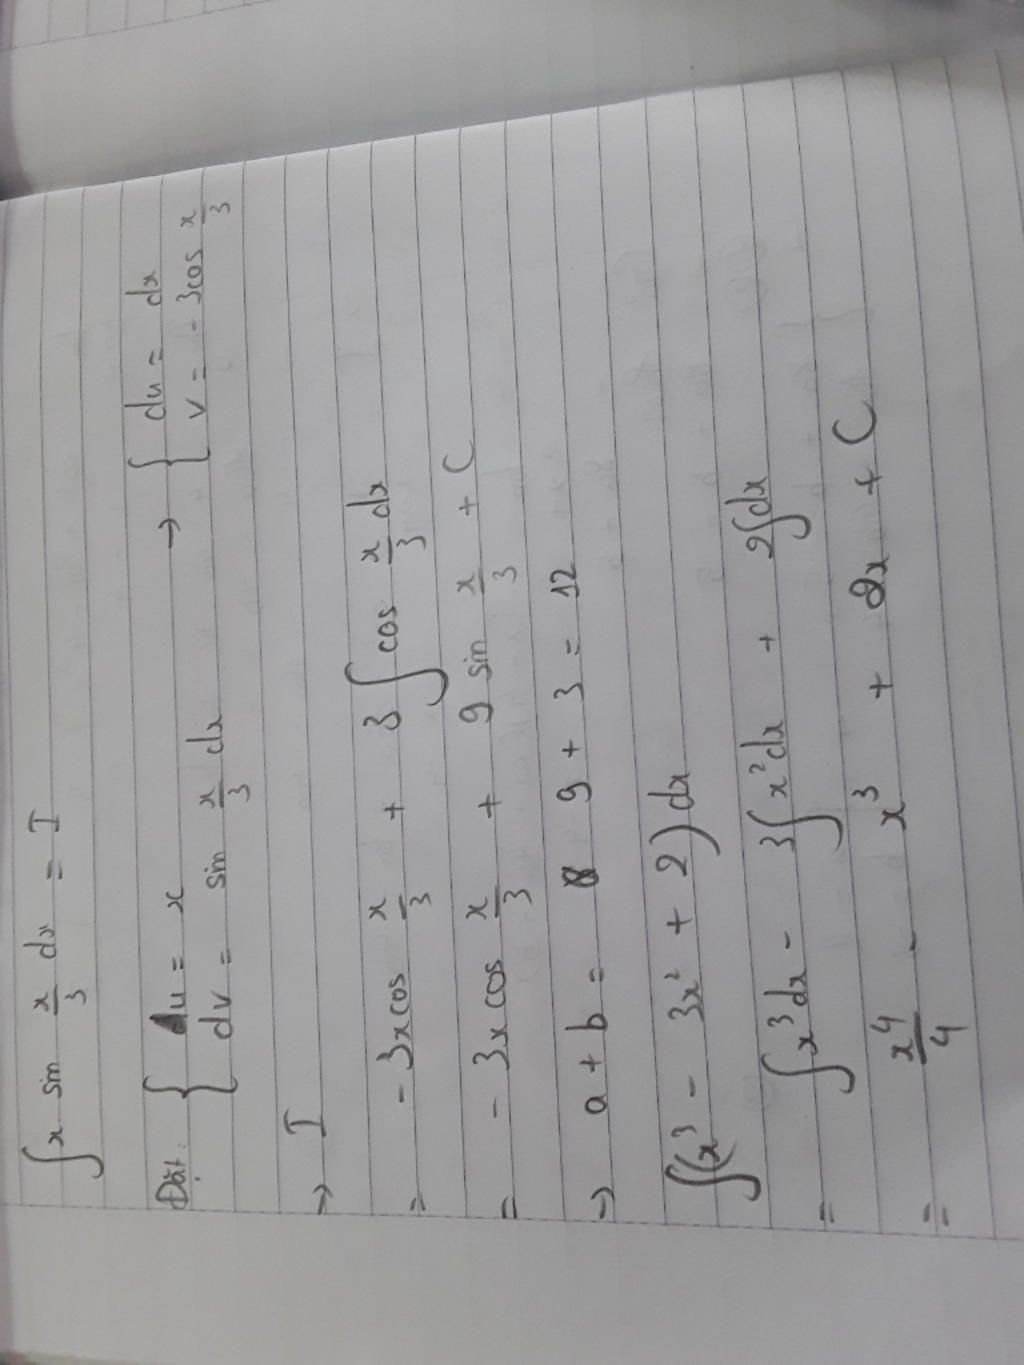 ∫ x sin x/3 dx = I
Đặt: { u = x → { du = dx
dv = sin x/3 dx v = - 3cos x/3
→ I
= - 3x cos x/3 + 3 ∫ cos x/3 dx
= - 3x cos x/3 + 9 sin x/3 + C
→ a + b = 9 + 3 = 12
∫(x³ - 3x² + 2) dx
= ∫ x³dx - 3∫ x²dx + 2∫dx
= x⁴/4 - x³ + 2x + C